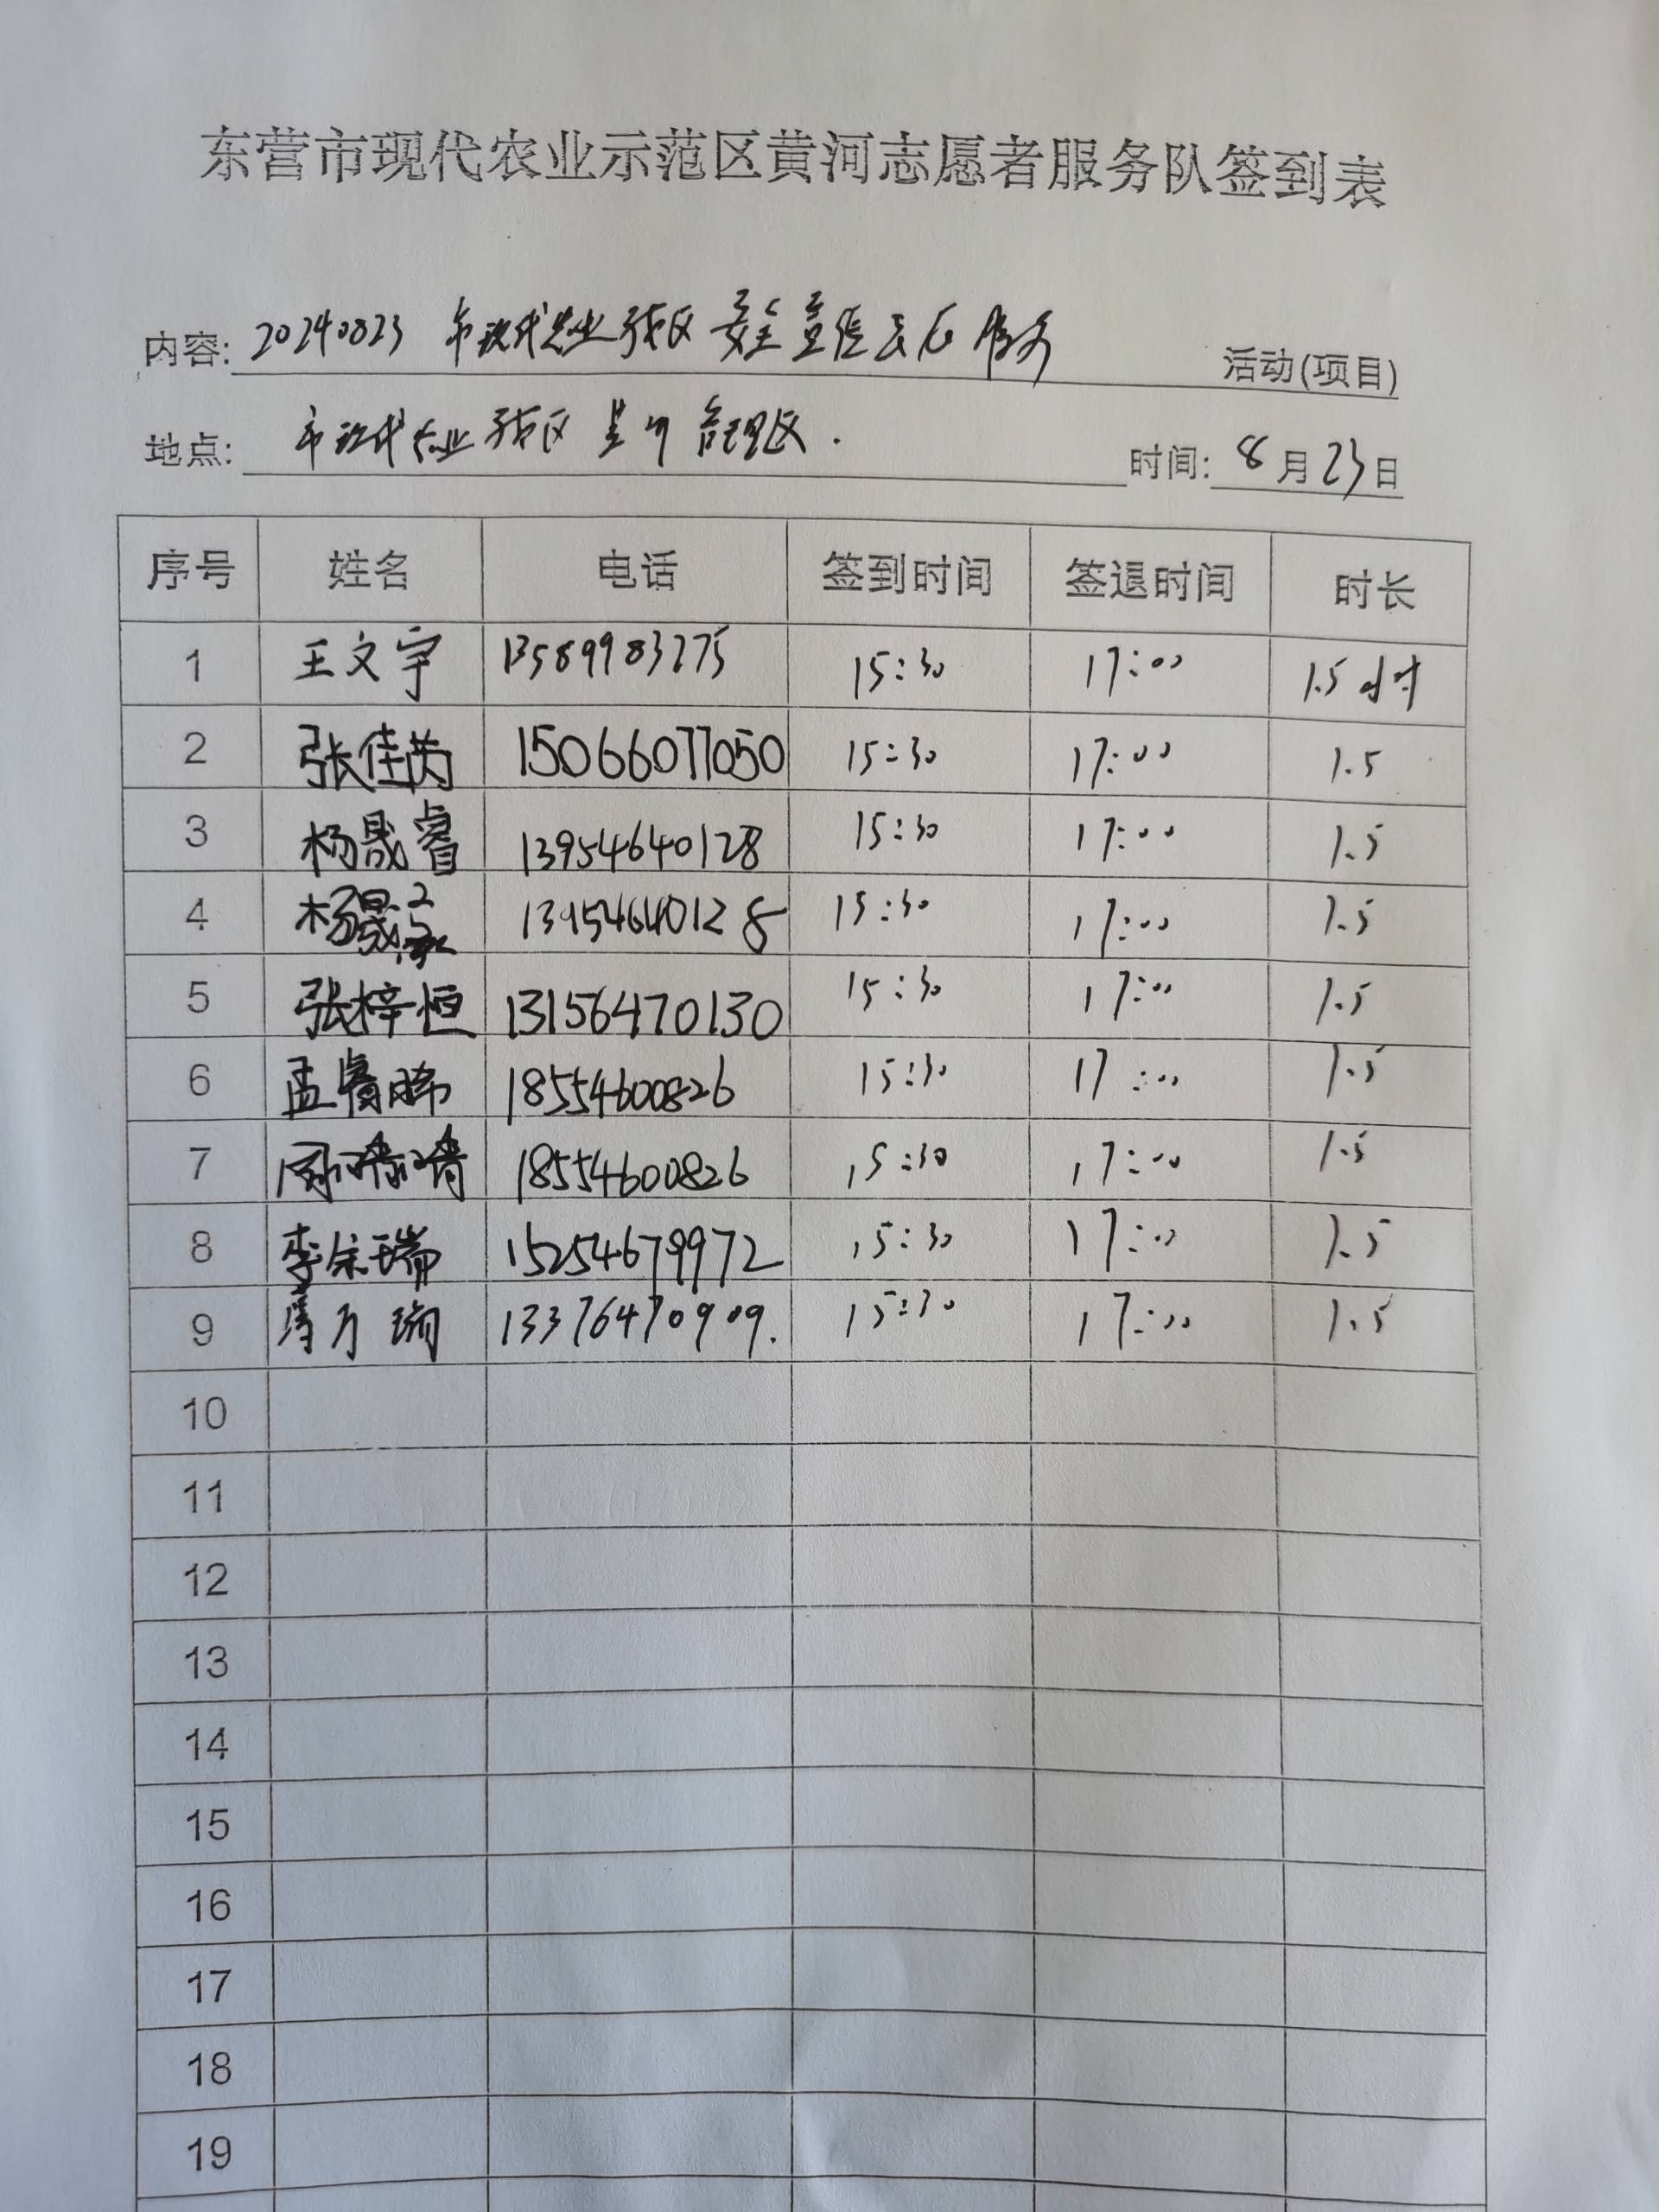 东营市现代农业示范区黄河志愿者服务队签到表
内容: 20240823 市现代农业示范区 安全宣传 服务 活动(项目)
地点: 市现代农业示范区 黄河 管理区. 时间: 8月23日
序号 姓名 电话 签到时间 签退时间 时长
1 王文宇 13589983275 15:30 17:00 1.5小时
2 张佳芮 15066077050 15:30 17:00 1.5
3 杨晟睿 13954640128 15:30 17:00 1.5
4 杨晟 13954640128 15:30 17:00 1.5
5 张梓恒 13156470130 15:30 17:00 1.5
6 孟睿晞 18554600826 15:30 17:00 1.5
7 18554600826 15:30 17:00 1.5
8 李宗瑞 15254679972 15:30 17:00 1.5
9 13376470909. 15:30 17:00 1.5
10
11
12
13
14
15
16
17
18
19